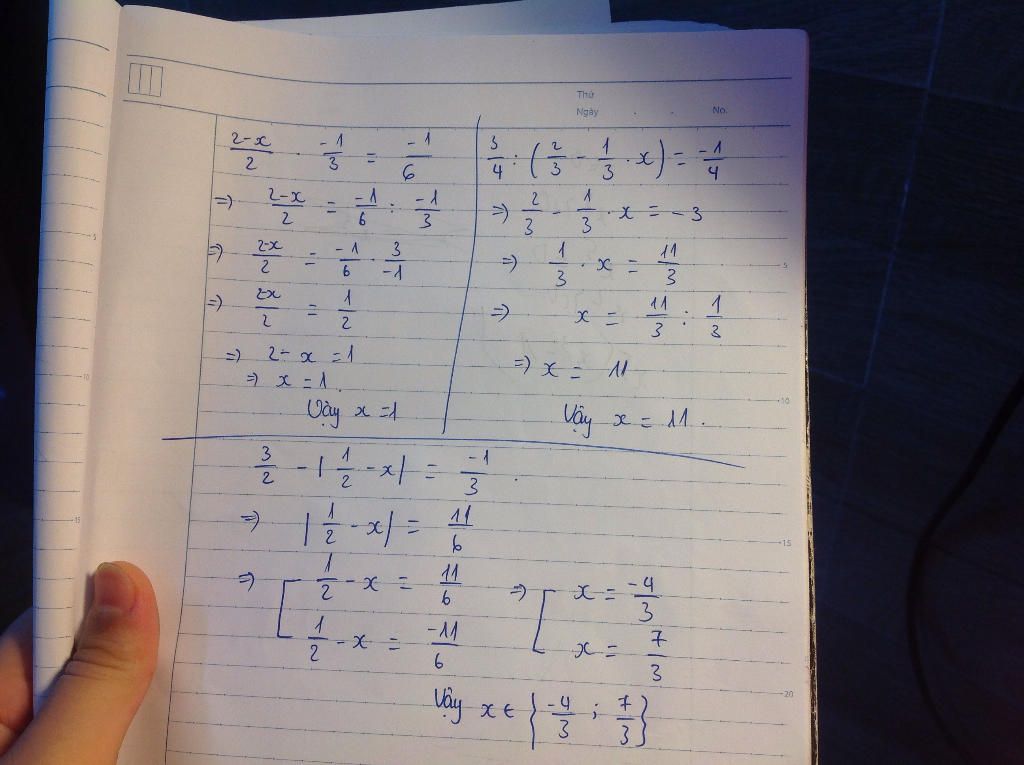 Thứ
Ngày No.
(2-x)/2 . (-1)/3 = (-1)/6
=) (2-x)/2 = (-1)/6 : (-1)/3
=) (2-x)/2 = (-1)/6 . 3/(-1)
=) (2-x)/2 = 1/2
=) 2 - x = 1
=) x = 1.
Vậy x = 1
3/4 : (2/3 - 1/3 . x) = (-1)/4
=) 2/3 - 1/3 . x = -3
=) 1/3 . x = 11/3
=) x = 11/3 : 1/3
=) x = 11
Vậy x = 11.
3/2 - |1/2 - x| = (-1)/3.
=) |1/2 - x| = 11/6
=) [ 1/2 - x = 11/6 =) [ x = (-4)/3
1/2 - x = (-11)/6 x = 7/3
Vậy x ∈ {(-4)/3 ; 7/3}
5
10
15
5
10
15
20